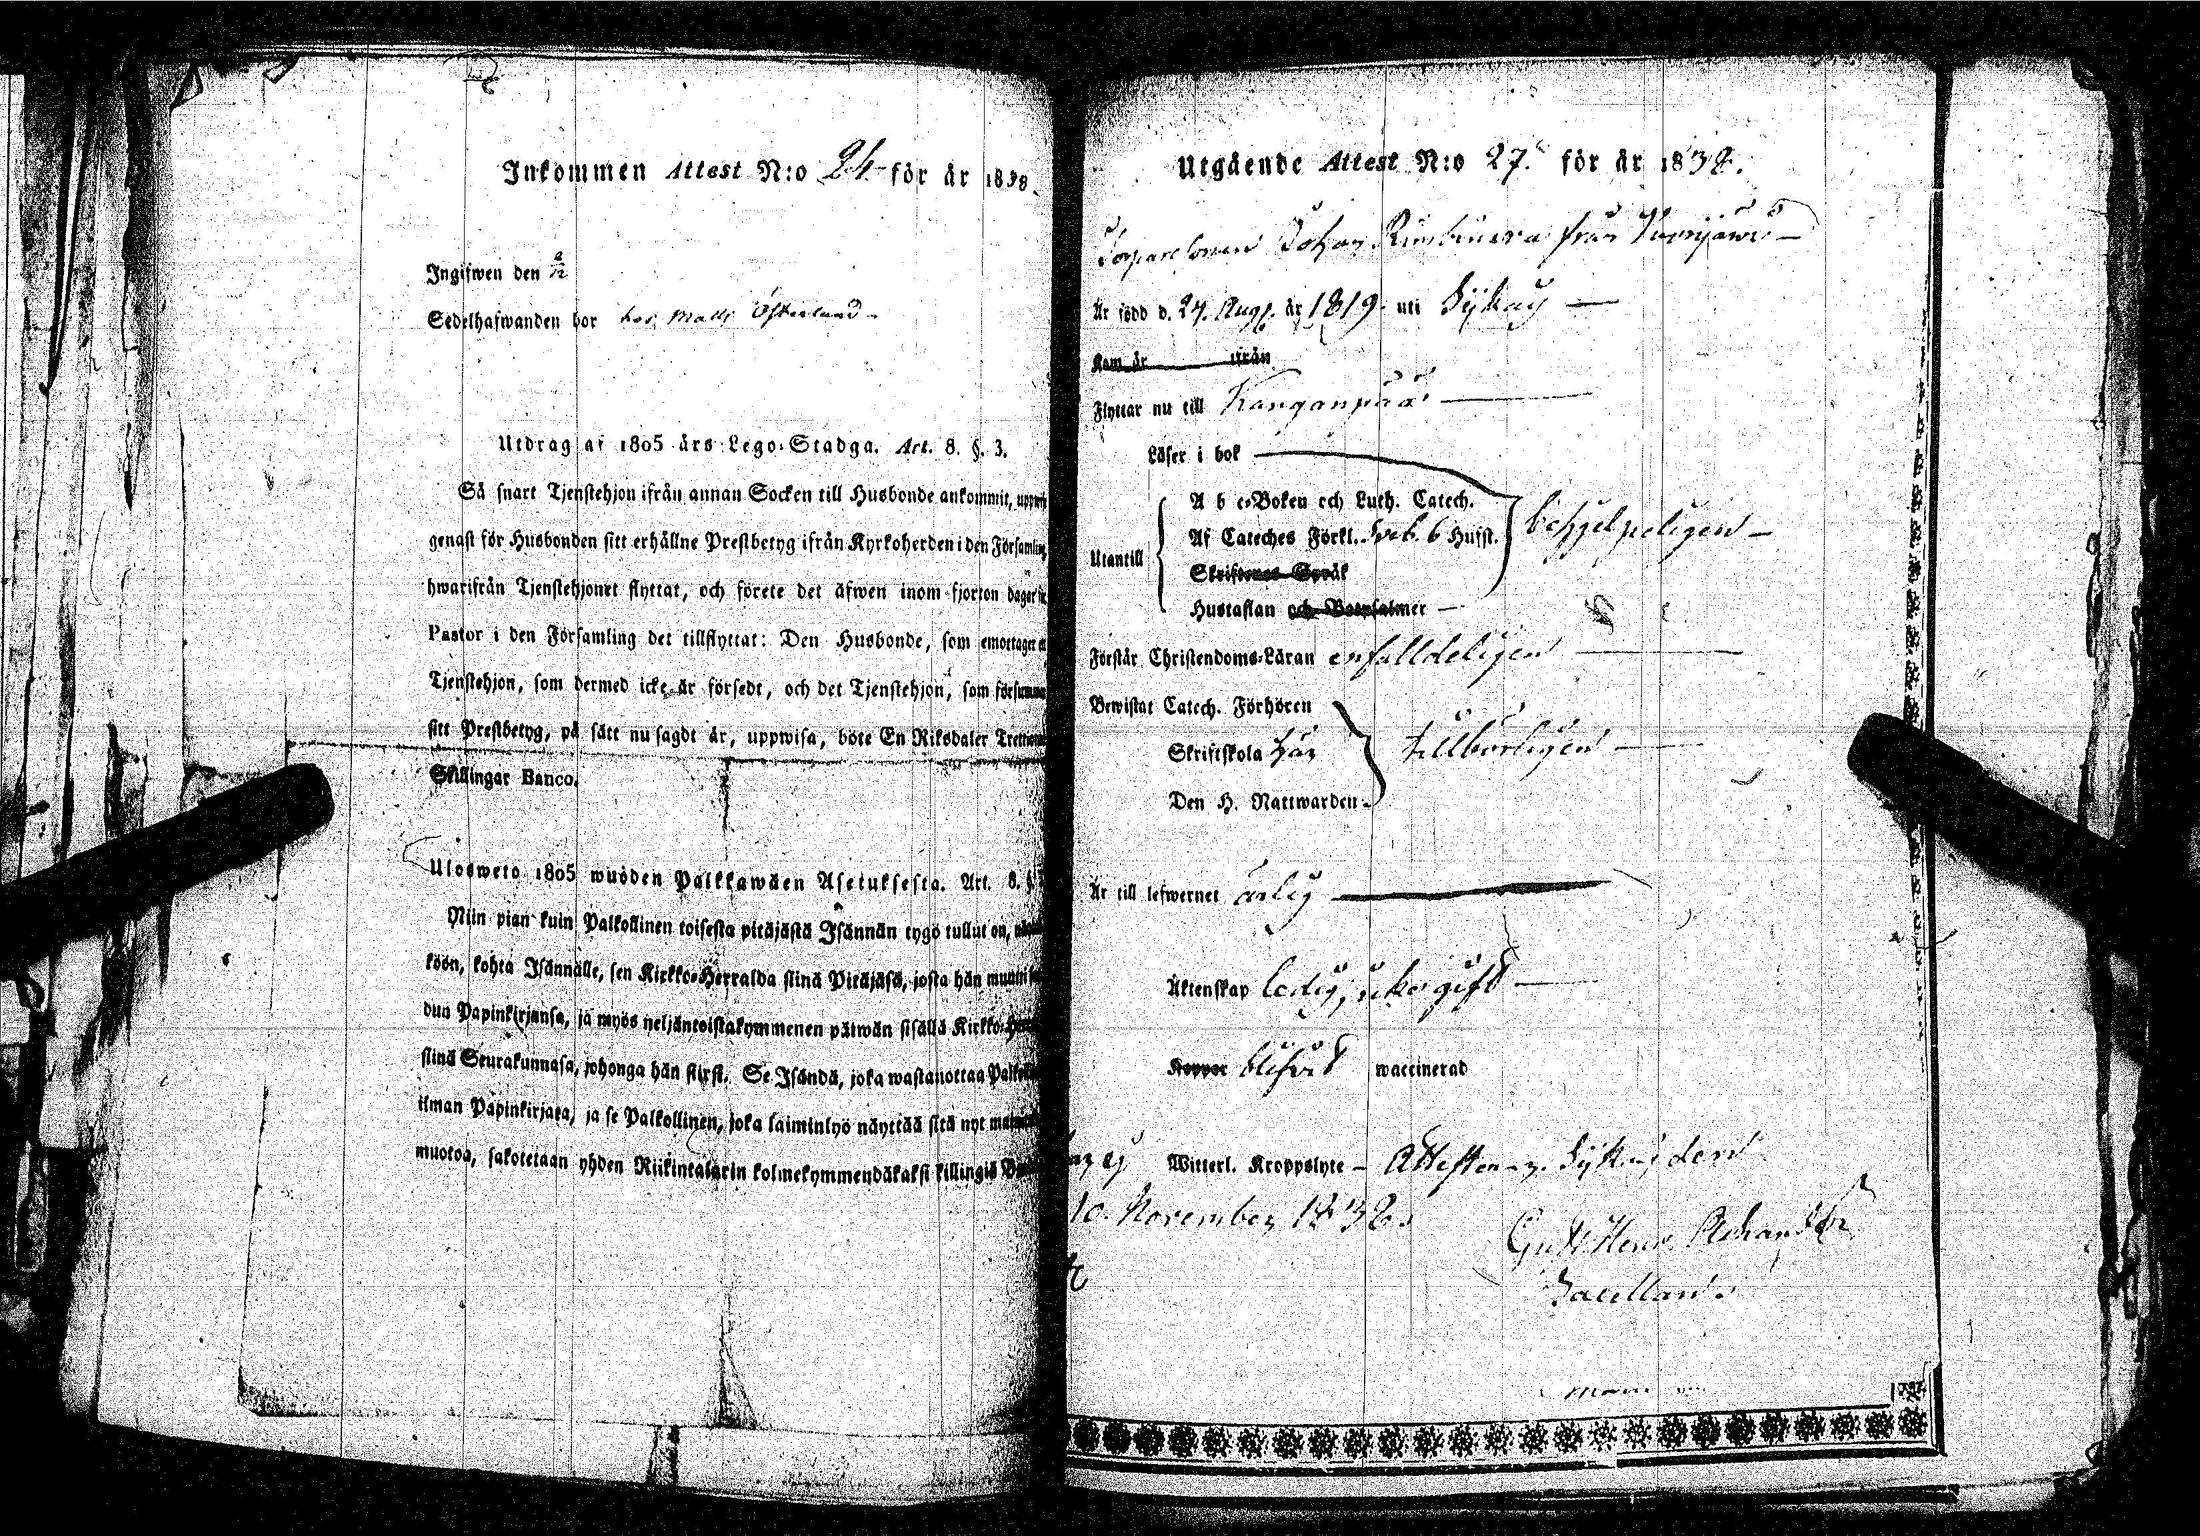 Inkommen Attest N:o 24 för år 1838.
Ingifwen den 2/12
Sedelhafwanden bor hos Matts Österlund
Utdrag af 1805 års Lego-Stadga. Art. 8. §. 3.
Så snart Tjenstehjon ifrån annan Socken till Husbonde ankommit,
genast för Husbonden sitt erhållne Prestbetyg ifrån Kyrkoherden i den Församling
hwarifrån Tjenstehjonet flyttat, och förete det äfwen inom fjorton dagar
Pastor i den Församling det tillflyttat: Den Husbonde, som emottager
Tjenstehjon, som dermed icke är försedt, och det Tjenstehjon, som
sitt Prestbetyg, på sätt nu sagdt är, uppwisa, böte En Riksdaler
Skillingar Banco.
Ulosweto 1805 wuoden Palkkawäen Asetuksesta. Art. 8. §.
Niin pian kuin Palkollinen toisesta pitäjästä Isännän tygö tullut on,
köön, kohta Isännälle, sen Kirkko-Herralda siinä Pitäjäsä, josta hän
dun Papinkirjansa, ja myös neljäntoistakymmenen päiwän sisällä
siinä Seurakunnasa, johonga hän siirsi. Se Isändä, joka wastanottaa
ilman Papinkirjata, ja se Palkollinen, joka laiminlyö näyttää sitä nyt
muotoa, sakotetaan yhden Riikintalarin kolmekymmendäkaksi killingiä
Utgående Attest N:o 27. för år 1838.
Johan från
Är född d. 24. Aug. år 1819. uti
Kom år ifrån
Flyttar nu till Kanganpää
Läser i bok
A b c-Boken och Luth. Catech.
Utantill Af Cateches Förkl. Sveb. 6 Hufst.
Skriftenes Språk
Hustaflan och Botpsalmer
Förstår Christendoms-Läran enfalldeligen
Bewistat Catech. Förhören
Skriftskola tillbörligen
Den H. Nattwarden
Är till lefwernet ärlig
Äktenskap ledig, ogift
Koppor blifvit waccinerad
Witterl. Kroppslyte den
10. November 1838.